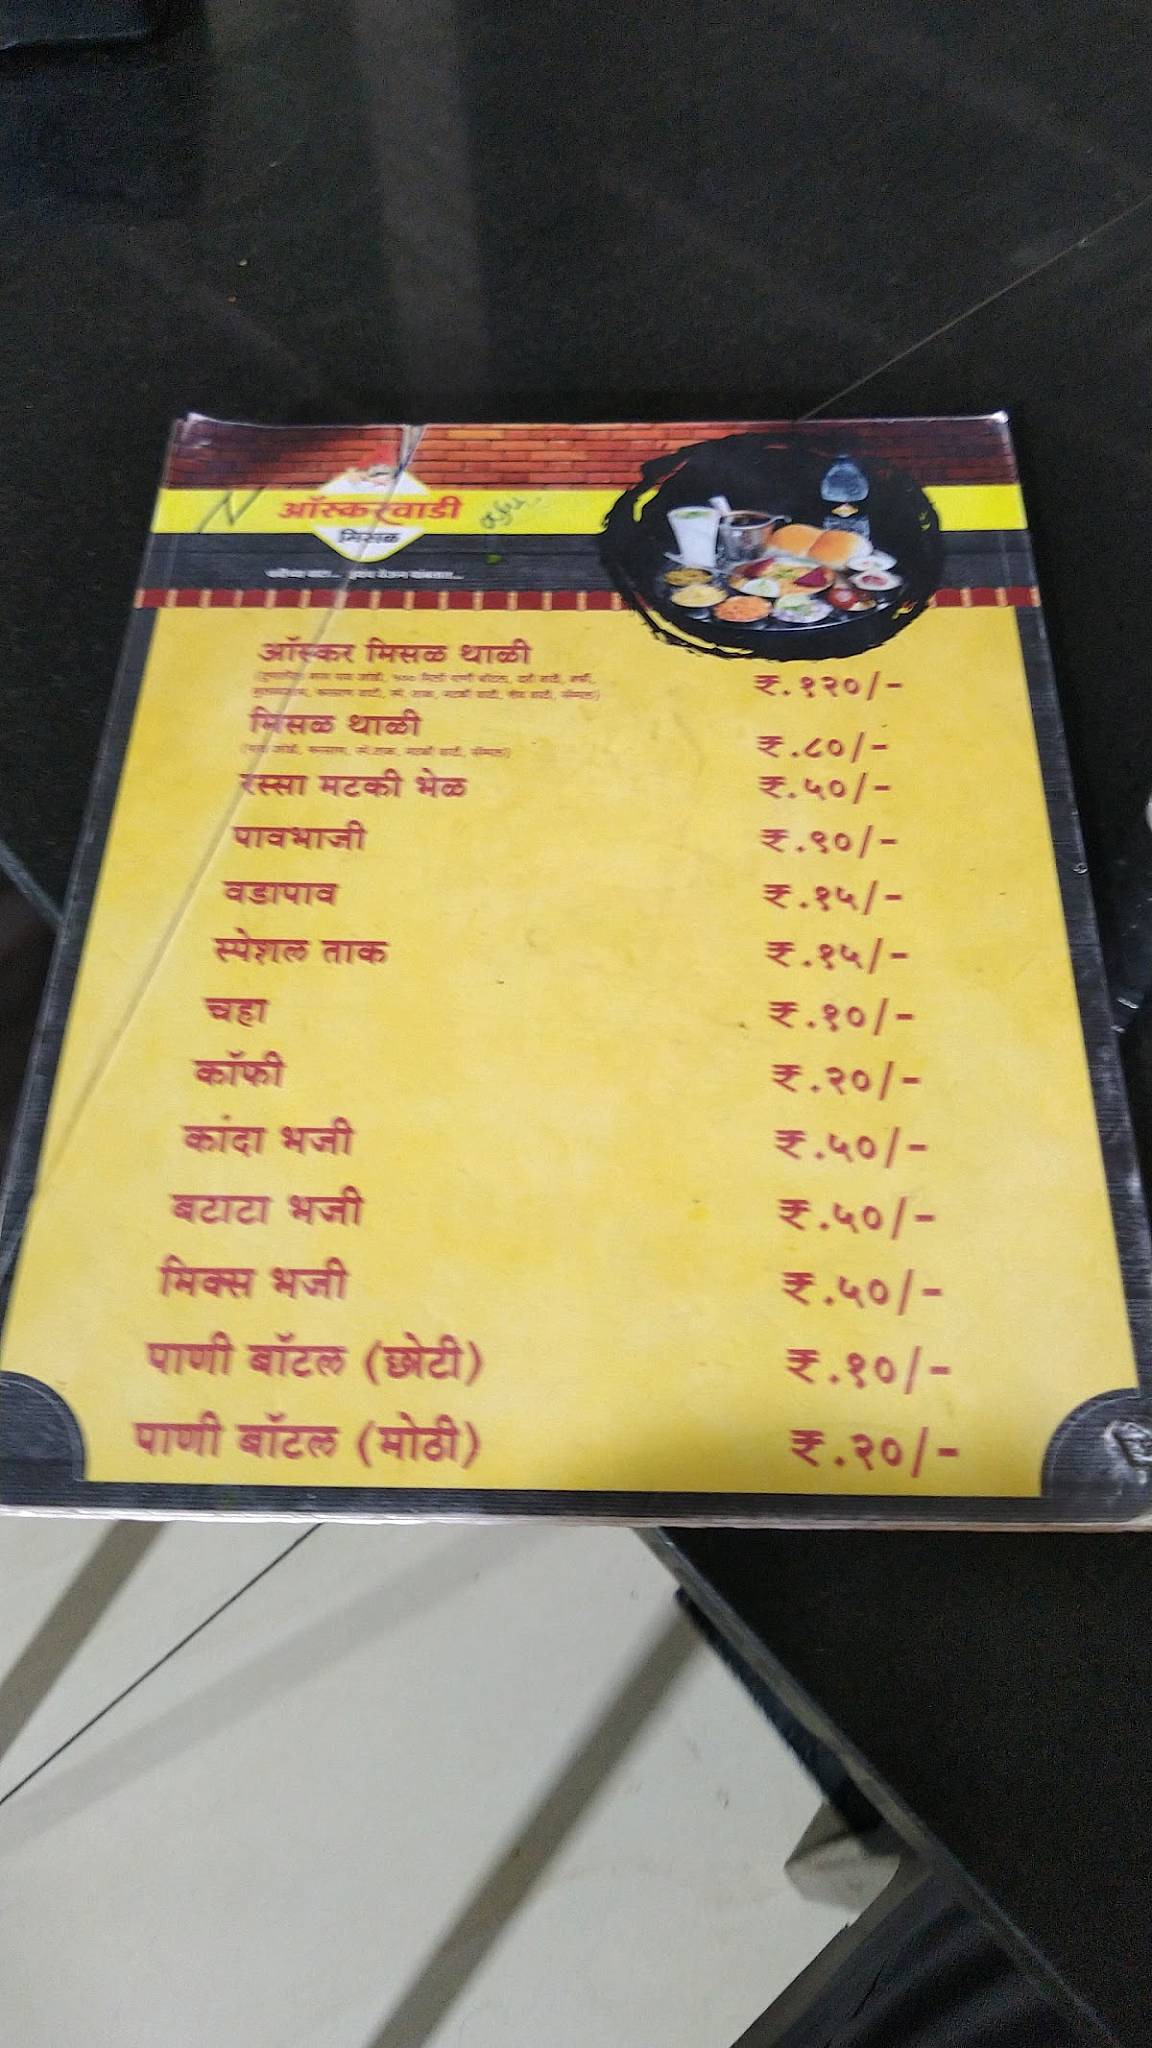 ऑस्करवाडी
मिसळ
ऑस्कर मिसळ थाळी
₹.१२०/-
मिसळ थाळी
₹.८०/-
रस्सा मटकी भेळ ₹.५०/-
पावभाजी ₹.९०/-
वडापाव ₹.१५/-
स्पेशल ताक ₹.१५/-
चहा ₹.१०/-
कॉफी ₹.२०/-
कांदा भजी ₹.५०/-
बटाटा भजी ₹.५०/-
मिक्स भजी ₹.५०/-
पाणी बॉटल (छोटी) ₹.१०/-
पाणी बॉटल (मोठी) ₹.२०/-